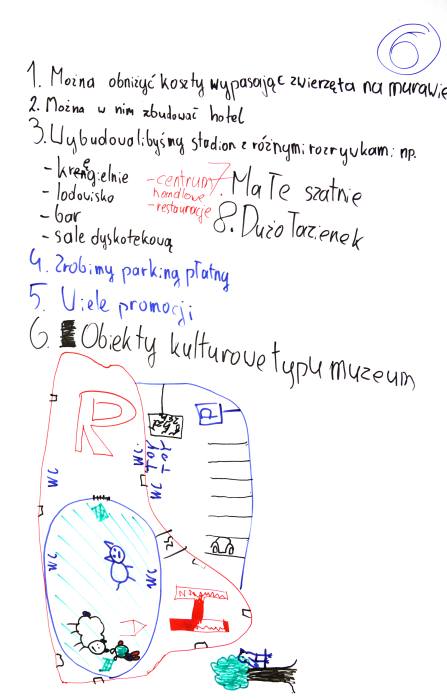 6
1. Można obniżyć koszty wypasając zwierzęta na murawie
2. Można w nim zbudować hotel
3. Wybudowalibyśmy stadion z różnymi rozrywkami np.
- kręgielnie
- lodowisko
- bar
- sale dyskotekową
- centrum
handlowe
- restauracje
7. Małe szatnie
8. Dużo łazienek
4. Zrobimy parking płatny
5. Wiele promocji
6. Obiekty kulturowe typu muzeum
R
P
WC
WC
WC
WC
WC